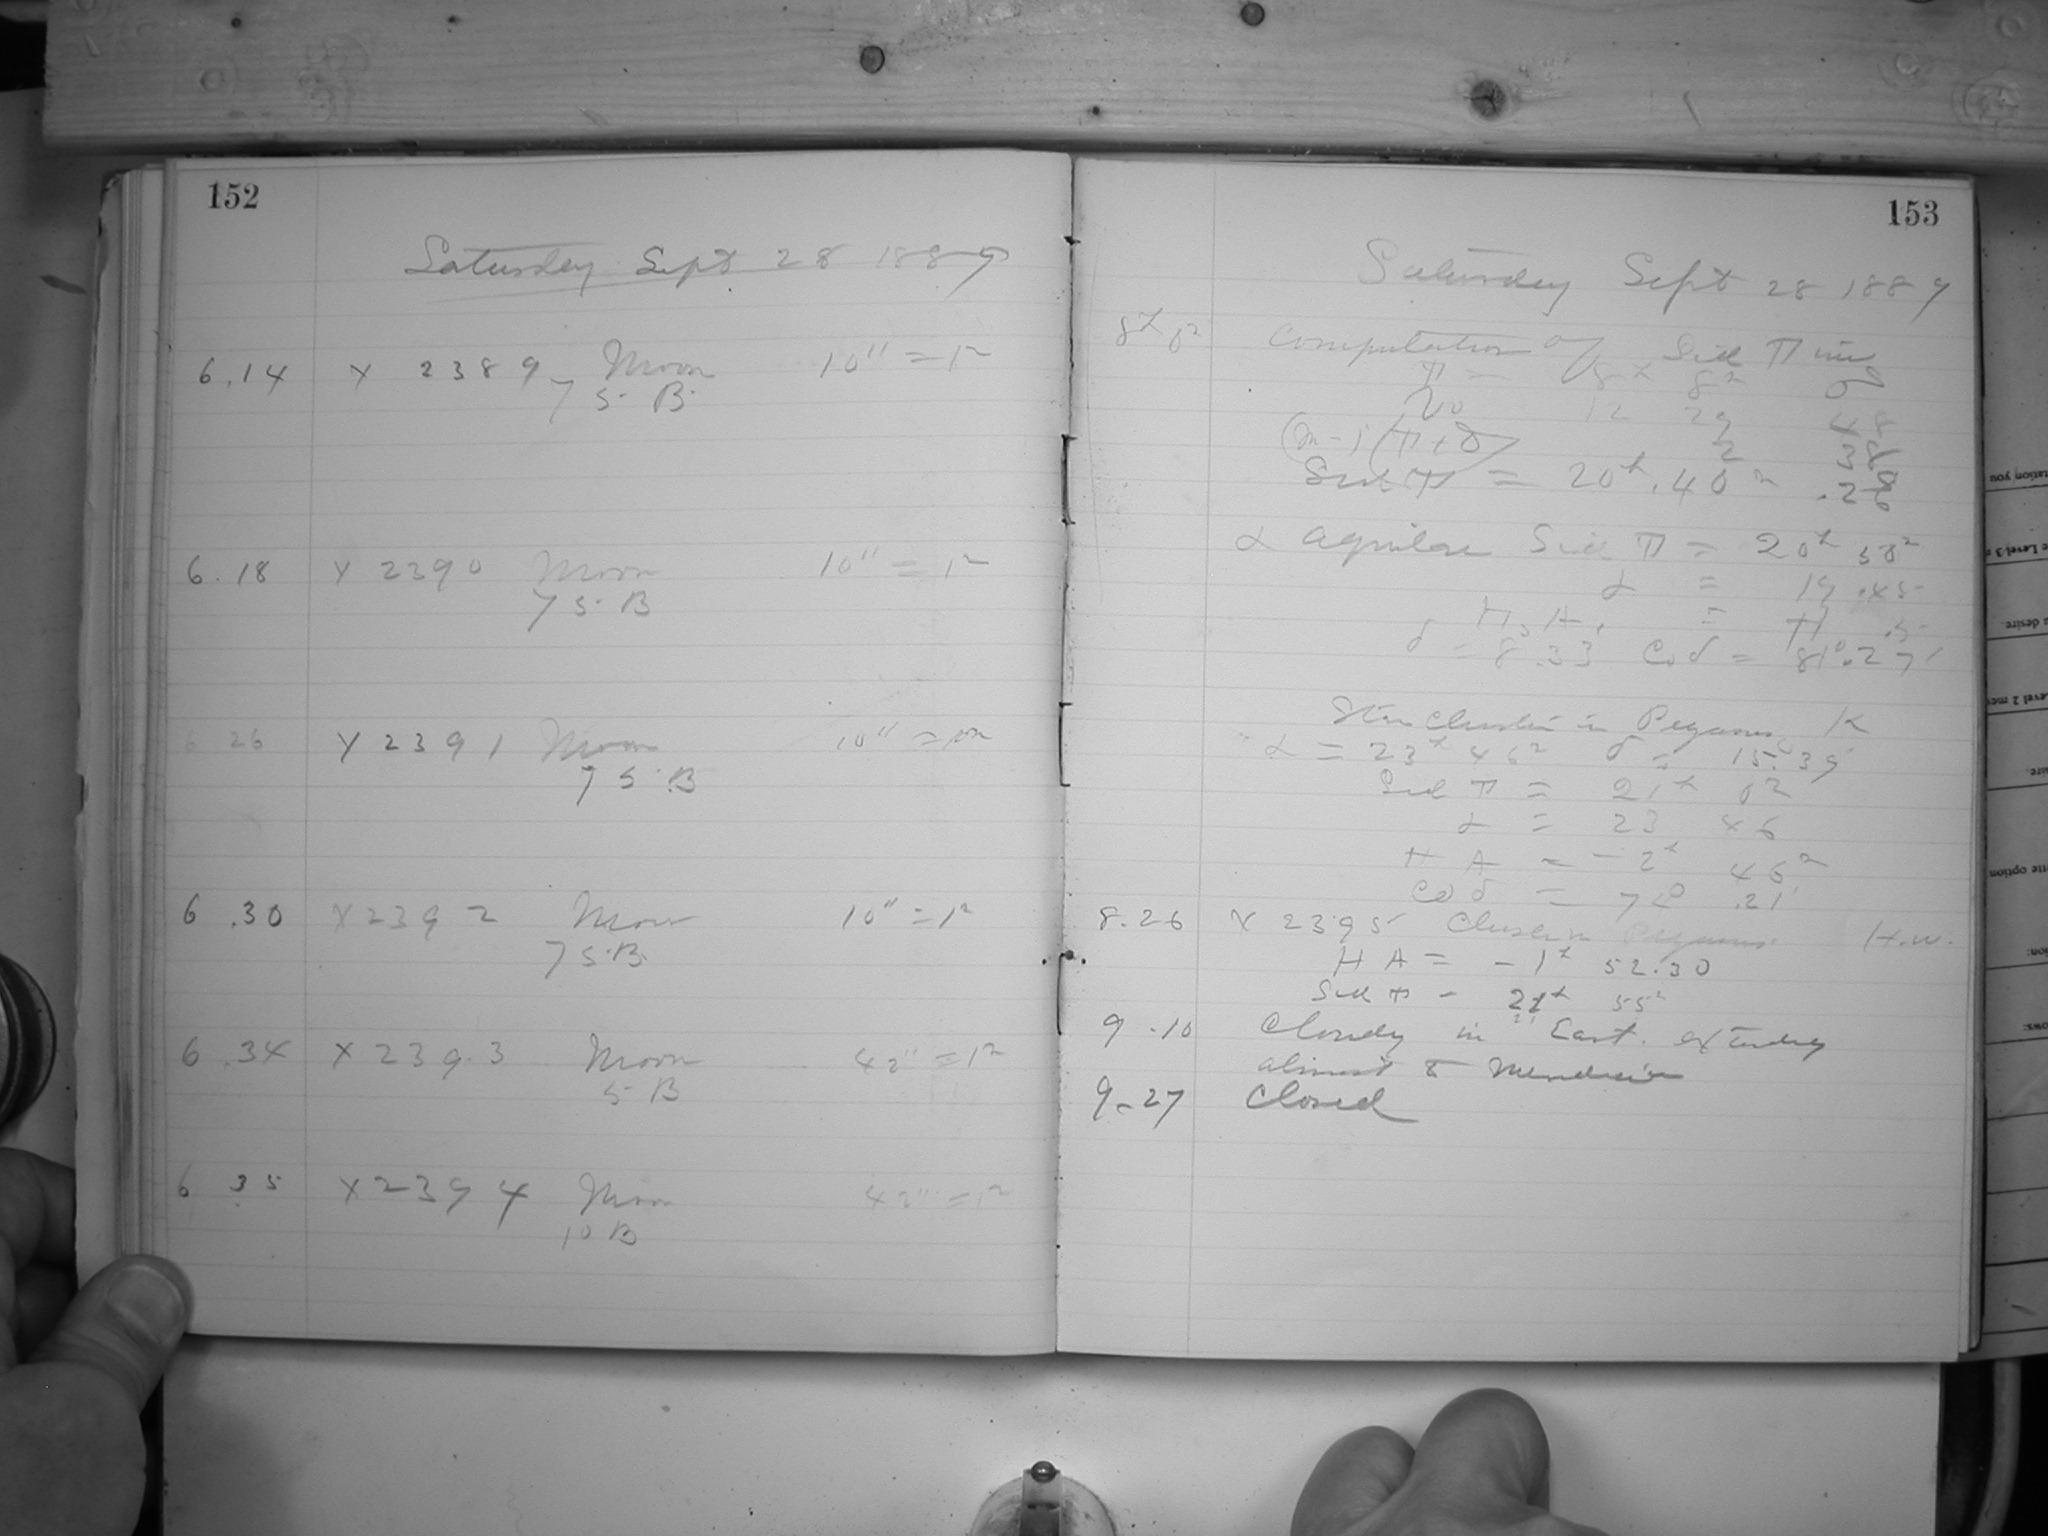 152
Saturday Sept 28 1889
6.14 X 2389 Moon 10" = 1m
75 B
6.18 X 2390 Moon 10" = 1m
75 B
6 26 X 2391 Moon 10" = 1m
75 B
6.30 X 2392 Moon 10" = 1m
75 B
6.34 X 2393 Moon 42" = 1m
5 B
6 35 X 2394 Moon 42" = 1m
10 B
153
Saturday Sept 28 1889
computation of Sid Time
T = 8h 8m 0
12 29 48
Sid T = 20h.40m .26
α Aquilae Sid T = 20h 50m
α = 19.45
H.A. =
δ = 8.33 Co δ = 81°.27'
Star Cluster in Pegasus
α = 23h 46m δ = 15.39
Sid T = 21h 0m
α = 23 46
H A = -2h 46m
Co δ = 74° .21'
8.26 X 2395 Cluster in Pegasus H.W.
H A = -1h 52.30
Sid T = 55m
9.10 Cloudy in East. extending
almost to Meridian
9.27 Closed